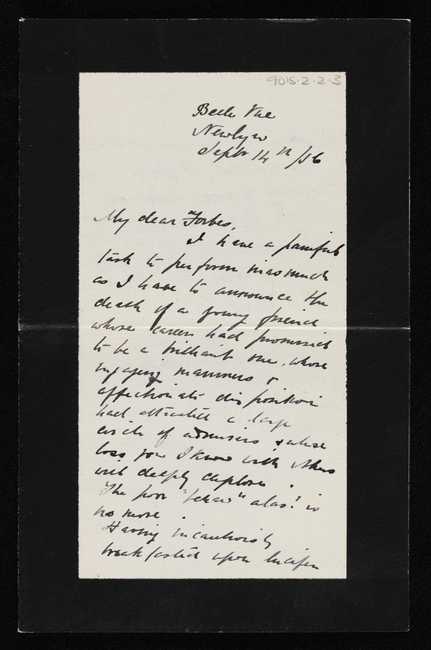 9015.2.2.3
Belle Vue
Newlyn
Septr 14th /86
My dear Forbes,
I have a painful
task to perform inasmuch
as I have to announce the
death of a young friend
whose career had promised
to be a brilliant one, whose
engaging manners &
affectionate disposition
had attracted a large
circle of admirers & whose
loss you I know with others
will deeply deplore.
The poor "Jckaw" alas! is
no more.
Having incautiously
breakfasted upon lucifer